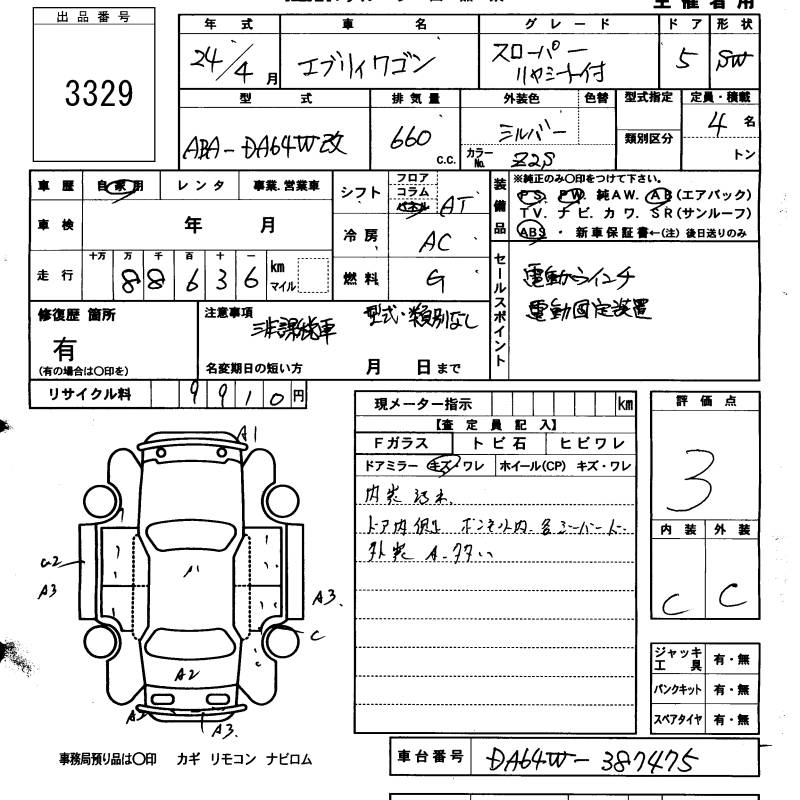 出品番号
3329
年式 車名 グレード ドア 形状
24/4月 エブリイワゴン スローパー リヤシート付 5 SW
型式 排気量 外装色 色替 型式指定 定員・積載
類別区分
ABA-DA64W改 660 c.c. シルバー 4名
カラーNo. Z2S トン
車歴 自家用 レンタ 事業.営業車
シフト フロア コラム パネル AT
装備品 ※純正のみ○印をつけて下さい。
PS. PW. 純AW. AB(エアバック)
TV. ナビ. カワ. SR(サンルーフ)
ABS ・ 新車保証書←(注) 後日送りのみ
車検 年 月
冷房 AC
走行 十万 万 千 百 十 一
88636 km マイル
燃料 G
セールスポイント
電動ウインチ
電動固定装置
修復歴 箇所
有
(有の場合は○印を)
注意事項
非課税車 型式・類別なし
名変期日の短い方 月 日まで
リサイクル料 9910円
現メーター指示 km
【査定員記入】
Fガラス トビ石 ヒビワレ
ドアミラー キズ・ワレ ホイール(CP) キズ・ワレ
ドア内側 ボンネット内
外装 A.
評価点
3
内装 外装
C C
A1
A3
A3.
C
A2
A3.
ジャッキ工具 有・無
パンクキット 有・無
スペアタイヤ 有・無
事務局預り品は○印 カギ リモコン ナビロム
車台番号 DA64W-387475